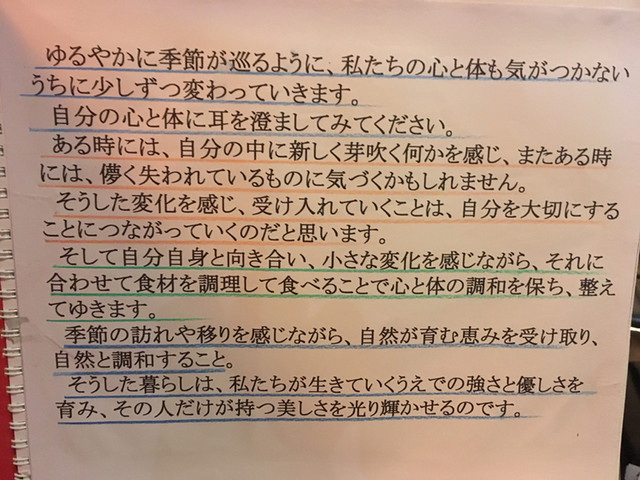 ゆるやかに季節が巡るように、私たちの心と体も気がつかない
うちに少しずつ変わっていきます。
自分の心と体に耳を澄ましてみてください。
ある時には、自分の中に新しく芽吹く何かを感じ、またある時
には、儚く失われているものに気づくかもしれません。
そうした変化を感じ、受け入れていくことは、自分を大切にする
ことにつながっていくのだと思います。
そして自分自身と向き合い、小さな変化を感じながら、それに
合わせて食材を調理して食べることで心と体の調和を保ち、整え
てゆきます。
季節の訪れや移りを感じながら、自然が育む恵みを受け取り、
自然と調和すること。
そうした暮らしは、私たちが生きていくうえでの強さと優しさを
育み、その人だけが持つ美しさを光り輝かせるのです。